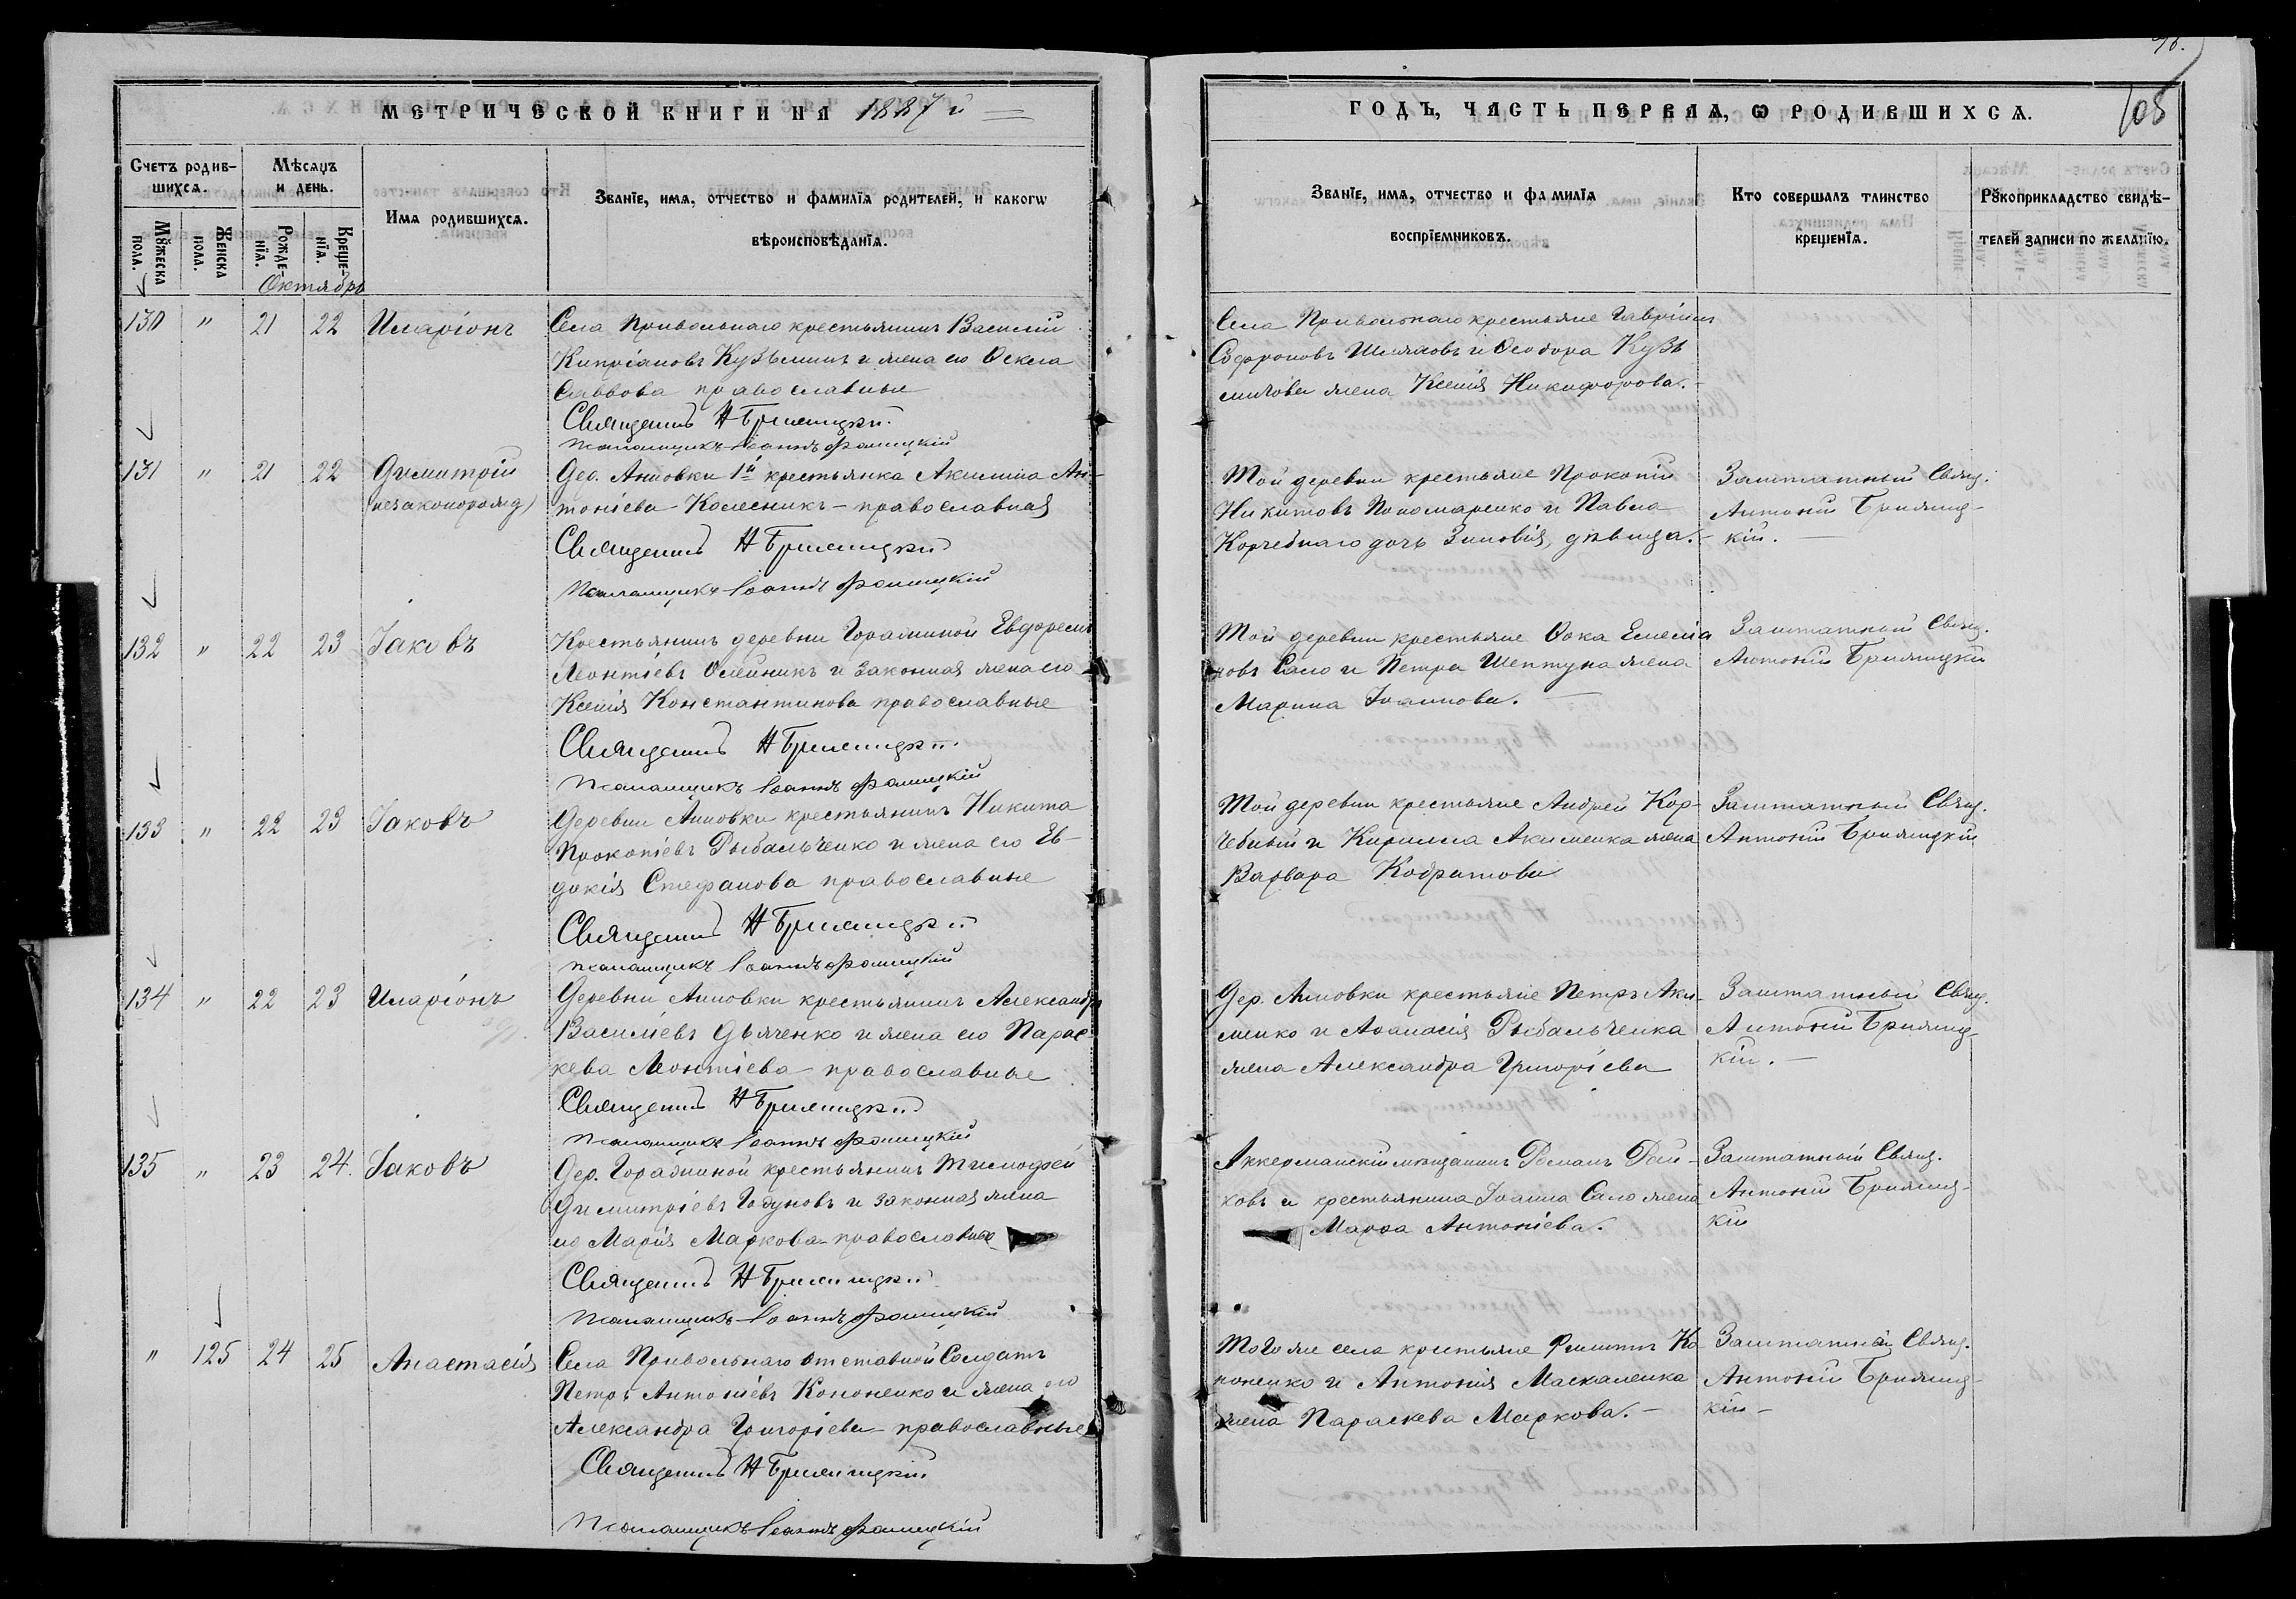 МЕТРИЧЕСКОЙ КНИГИ НА 1887 й
ГОДЪ, ЧАСТЬ ПЕРВАЯ, Ѡ РОДИВШИХСѦ.
108
Счетъ родив-
шихсѧ.
Мѣсѧцъ
и день.
Мꙋжеска
пола.
Женска
пола.
Рожде-
нїѧ.
Креще-
нїѧ.
Имѧ родившихсѧ.
Званїе, имѧ, отчество и фамилїѧ родителей, и какогѡ
вѣроисповѣданїѧ.
Званїе, имѧ, отчество и фамилїѧ
воспрїемниковъ.
Кто совершалъ таинство
крещенїѧ.
Рꙋкоприкладство свидѣ-
телей записи по желанїю.
Октябрь
130 " 21 22 Иларіонъ
Села Привольнаго крестьянинъ Василій
Кипріановъ Кузьминъ и жена его Ѳекла
Саввова православные
Священникъ Н Брижицкій
Псаломщикъ Іоаннъ
Села Привольнаго крестьяне Гавріилъ
Софроновъ и Ѳеодора Кузь
жена Ксенія Никифорова.-
131 " 21 22 Димитрій
(незаконорожд)
Дер. Анновки 1й крестьянка Акилина Ан-
тоніева Колесникъ - православная
Священникъ Н Брижицкій
Псаломщикъ Іоаннъ
Той деревни крестьяне Прокопій
Никитовъ Пономаренко и Павла
Корчебнаго дочь Зиновія, дѣвица.-
Заштатный Свящ.
Антоній Брижиц-
кій.-
132 " 22 23 Іаковъ
Крестьянинъ деревни Горажиной
Леонтіевъ Олейникъ и законная жена его
Ксенія Константинова православные
Священникъ Н Брижицкій
Псаломщикъ Іоаннъ
Той деревни крестьяне Ѳока Емелія
новъ Сало и Петра Шептуна жена
Марина Іоаннова.-
Заштатный Свящ.
Антоній Брижицкій
133 " 22 23 Іаковъ
Деревни Анновки крестьянинъ Никита
Прокопіевъ Рыбальченко и жена его Ев-
докія Стефанова православные
Священникъ Н Брижицкій
Псаломщикъ Іоаннъ
Той деревни крестьяне Андрей Кор-
чебный и Кирилла Акименка жена
Варвара Кодратова
Заштатный Свящ.
Антоній Брижицкій
134 " 22 23 Иларіонъ
Деревни Анновки крестьянинъ Александръ
Василіевъ Дьяченко и жена его Парас-
кева Леонтіева православные
Священникъ Н Брижицкій
Псаломщикъ Іоаннъ
Дер. Анновки крестьяне Петръ Аки-
менко и Аѳанасія Рыбальченка
жена Александра Григоріева
Заштатный Свящ.
Антоній Брижиц-
кій.-
135 " 23 24. Іаковъ
Дер. Горажиной крестьянинъ Тимофей
Димитріевъ Годуновъ и законная жена
его Марія Маркова православные
Священникъ Н Брижицкій
Псаломщикъ Іоаннъ
Аккерманскій мѣщанинъ Романъ Рай-
ковъ и крестьянина Іоанна Сало жена
Марѳа Антоніева.
Заштатный Свящ.
Антоній Брижиц-
кій
" 125 24 25 Анастасія
Села Привольнаго отставной Солдатъ
Петръ Антоніевъ Кононенко и жена его
Александра Григоріева православные
Священникъ Н Брижицкій
Псаломщикъ Іоаннъ
Того же села крестьяне Филиппъ Ко
ноненко и Антонія Маскаленка
жена Параскева Маркова.-
Заштатный Свящ.
Антоній Брижиц-
кій-